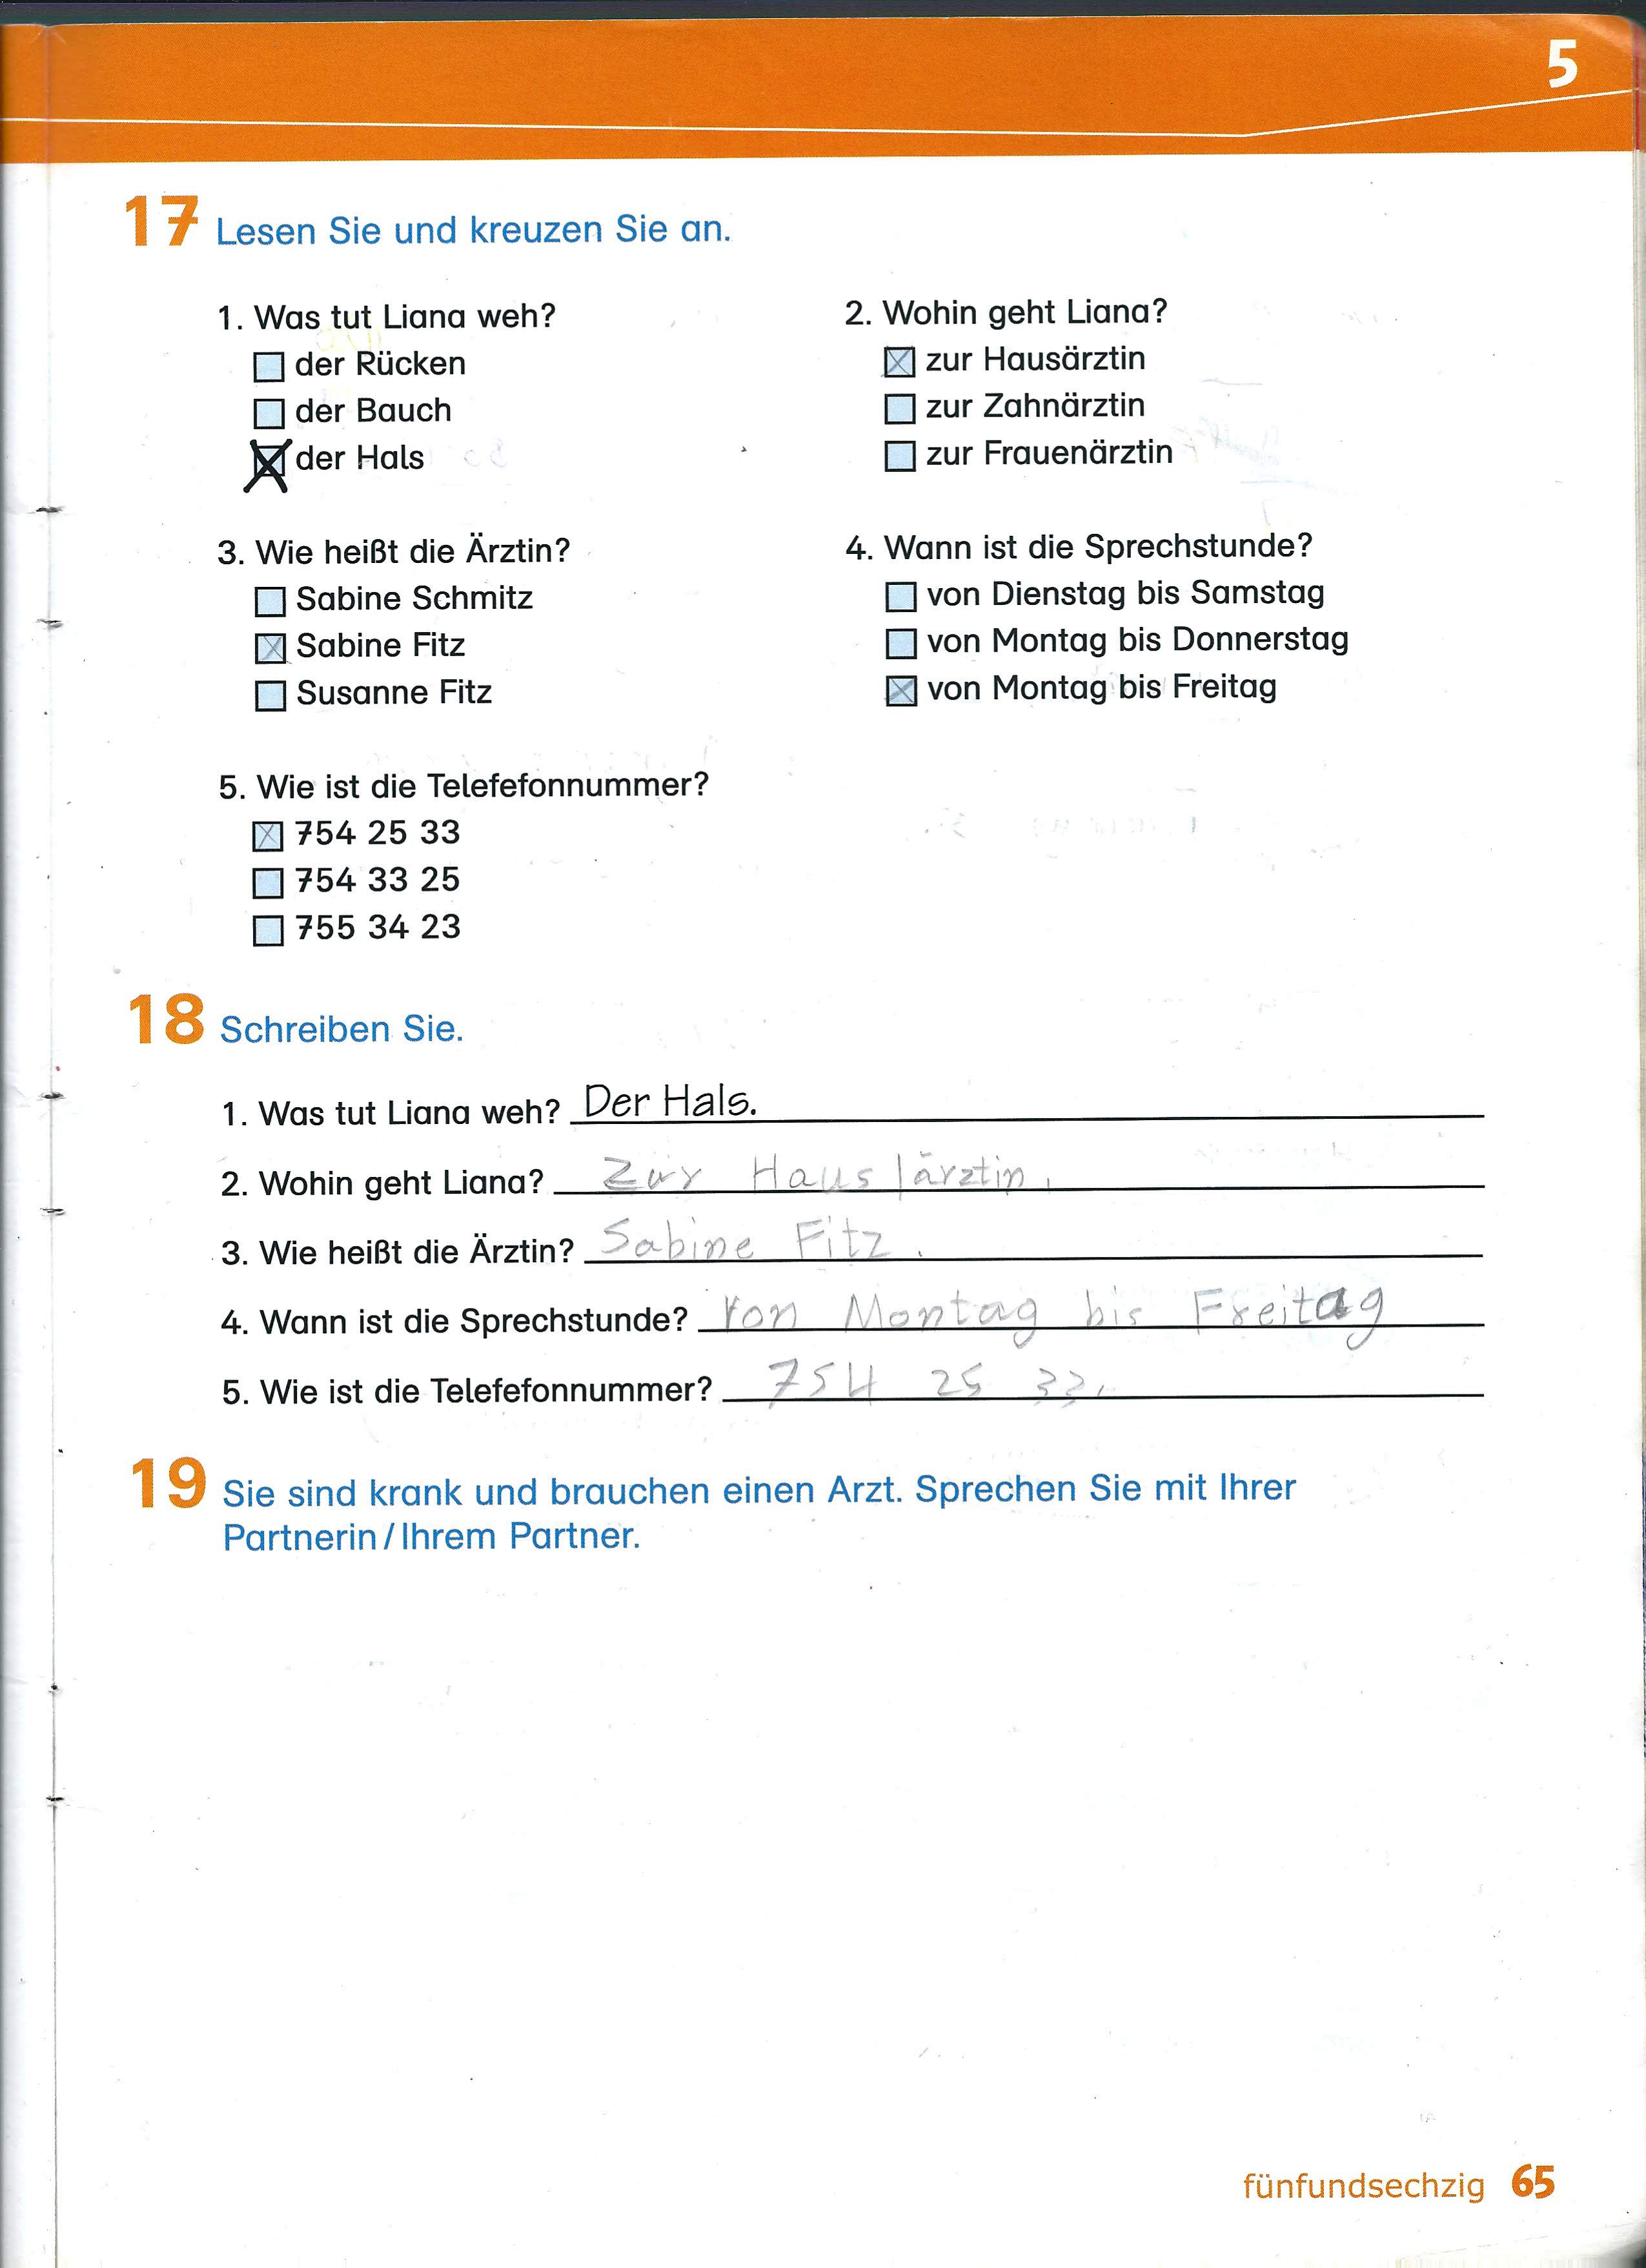 5
17 Lesen Sie und kreuzen Sie an.
1. Was tut Liana weh?
der Rücken
der Bauch
der Hals
2. Wohin geht Liana?
zur Hausärztin
zur Zahnärztin
zur Frauenärztin
3. Wie heißt die Ärztin?
Sabine Schmitz
Sabine Fitz
Susanne Fitz
4. Wann ist die Sprechstunde?
von Dienstag bis Samstag
von Montag bis Donnerstag
von Montag bis Freitag
5. Wie ist die Telefefonnummer?
754 25 33
754 33 25
755 34 23
18 Schreiben Sie.
1. Was tut Liana weh? Der Hals.
2. Wohin geht Liana? Zur Haus|ärztin.
3. Wie heißt die Ärztin? Sabine Fitz.
4. Wann ist die Sprechstunde? Von Montag bis Freitag
5. Wie ist die Telefefonnummer? 754 25 33.
19 Sie sind krank und brauchen einen Arzt. Sprechen Sie mit Ihrer
Partnerin/Ihrem Partner.
fünfundsechzig 65